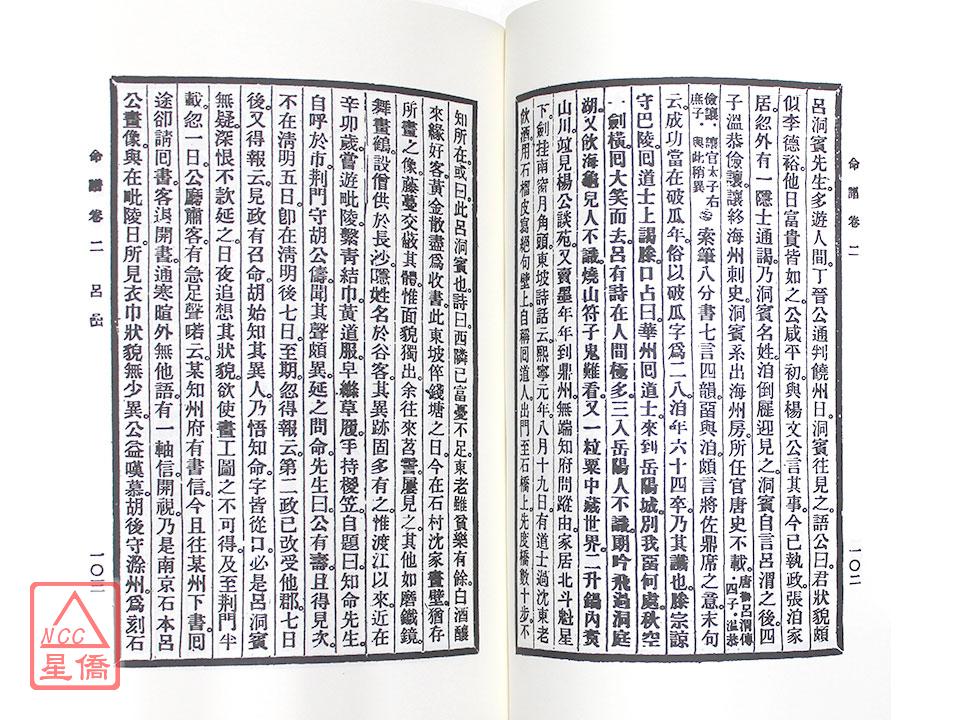 命譜卷二
一〇二
呂洞賓先生。多遊人間。丁晉公通判饒州日。洞賓往見之。語公曰。君狀貌頗
似李德裕。他日富貴皆如之。公咸平初與楊文公言其事。今已執政。張洎家
居。忽外有一隱士通謁。乃洞賓名姓。洎倒屣迎見之。洞賓自言呂渭之後。四
子溫恭儉讓。讓終海州刺史。洞賓系出海州房。所任官。唐史不載。唐書呂渭傳四子。溫恭
儉讓。讓官太子右庶子。與此稍異 索筆八分書七言四韻。留與洎。頗言將佐鼎席之意。末句
云。成功當在破瓜年。俗以破瓜字為二八。洎年六十四卒。乃其讖也。滕宗諒
守巴陵。回道士上謁。滕口占曰。華州回道士。來到岳陽城。別我留何處。秋空
一劍橫。回大笑而去。呂有詩在人間極多。三入岳陽人不識。朗吟飛過洞庭
湖。又飲海龜兒人不識。燒山符子鬼難看。又一粒粟中藏世界。二升鍋內煑
山川。竝見楊公談苑。又賣墨年年到鼎州。無端知府問蹤由。家居北斗魁星
下。劍挂南宵月角頭。東坡詩話云。熙寧元年八月十九日。有道士過沈東老
飲酒。用石榴皮寫絕句壁上。自稱回道人。出門至石橋上。先度橋數十步。不
知所在。或曰。此呂洞賓也。詩曰。西隣已富憂不足。東老雖貧樂有餘。白酒釀
來緣好客。黃金散盡為收書。此東坡倅錢塘之日。今在石村沈家。畫壁猶存
所畫之像。藤蔓交蔽其體。惟面貌獨出。余往來苕霅。屢見之。其他如磨鐵鏡。
舞畫鶴。設僧供於長沙。隱姓名於谷客。其異跡固多有之。惟渡江以來。近在
辛卯歲。嘗遊毗陵。繫青結巾。黃道服。皁絛草履。手持椶笠。自題曰知命先生。
自呼於市。荊門守胡公儔聞其聲頗異。延之問命。先生曰。公有壽。且得見次
不在清明五日。即在清明後七日。至期。忽得報云。第二政已改受他郡。七日
後。又得報云。見政有召命。胡始知其異人。乃悟知命字皆從口。必是呂洞賓
無疑。深恨不款延之。日夜追想其狀貌。欲使畫工圖之不可得。及至荊門半
載。忽一日。公廳肅客。有急足聲喏云。某知州府有書信。今且往某州下書。回
途卻請回書。客退開書。通寒暄外無他語。有一軸信。開視。乃是南京石本呂
公畫像。與在毗陵日。所見衣巾狀貌無少異。公益嘆慕。胡後守滁州。為刻石
命譜卷二 呂嵒
一〇三
NCC
星僑